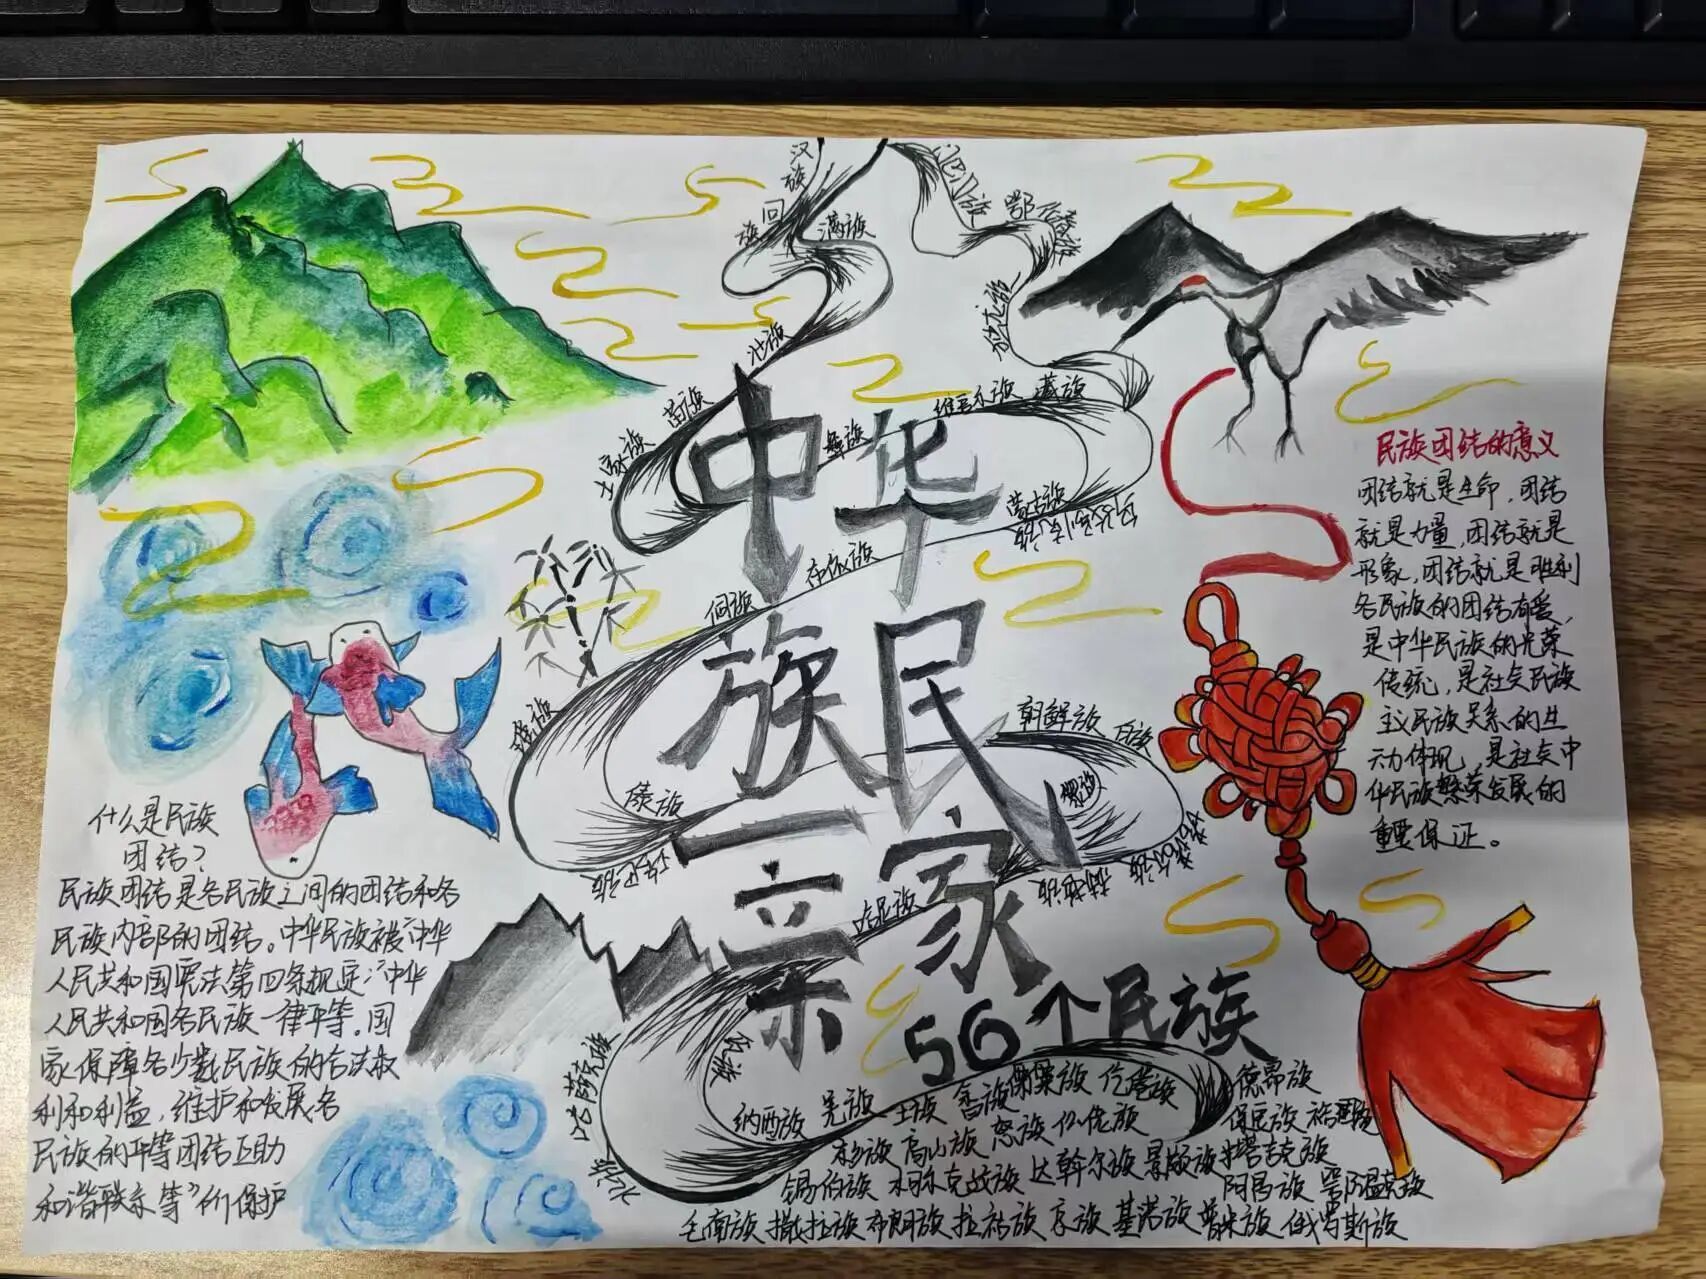 汉族
回族
满族
壮族
苗族
土家族
彝族
维吾尔族
藏族
蒙古族
布依族
侗族
瑶族
朝鲜族
白族
傣族
傈僳族
哈尼族
哈萨克族
鄂伦春族
独龙族
中华
民族
一家
亲
56个民族
民族团结的意义
团结就是生命，团结
就是力量，团结就是
形象，团结就是胜利
各民族的团结有爱，
是中华民族的光荣
传统，是社会民族
主义民族关系的生
动体现，是社会中
华民族繁荣发展的
重要保证。
什么是民族
团结？
民族团结是各民族之间的团结和各
民族内部的团结。中华民族被"中华
人民共和国宪法第四条规定："中华
人民共和国各民族一律平等。国
家保障各少数民族的合法权
利和利益，维护和发展各
民族的平等团结互助
和谐联系等"所保护
纳西族 羌族 土族 畲族 仡佬族 德昂族
水族 高山族 怒族 仫佬族 保安族 裕固族
锡伯族 柯尔克孜族 达斡尔族 景颇族 塔吉克族
阿昌族 鄂温克族
毛南族 撒拉族 布朗族 拉祜族 京族 基诺族 普米族 俄罗斯族